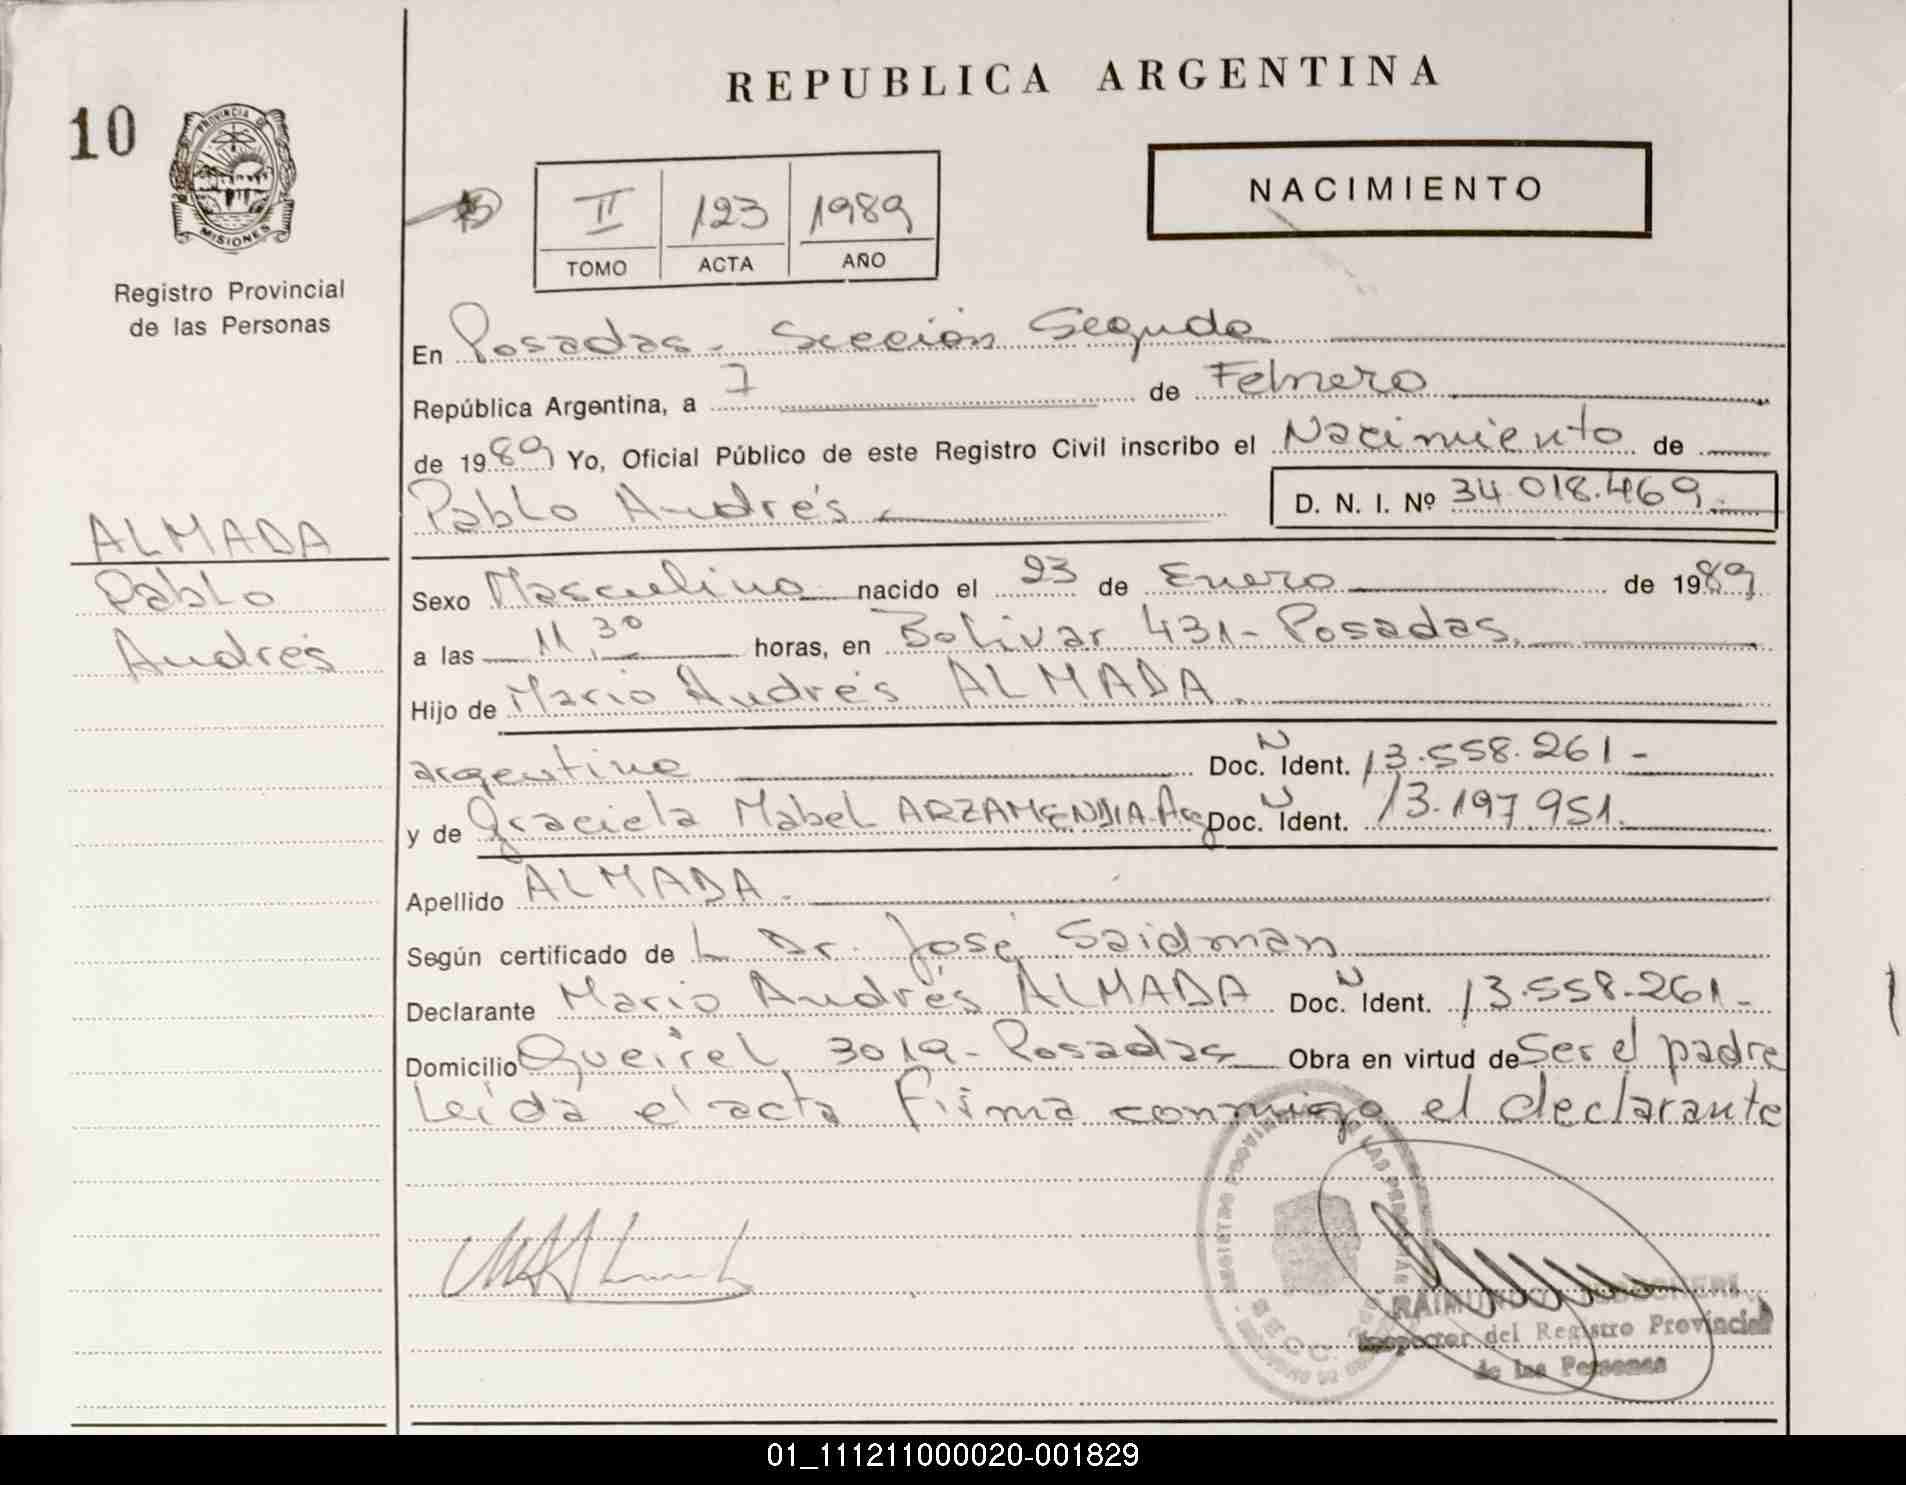 REPUBLICA ARGENTINA
10
PROVINCIA DE
MISIONES
Registro Provincial
de las Personas
II 123 1989
TOMO ACTA AÑO
NACIMIENTO
En Posadas - Sección Segunda
República Argentina, a 7 de Febrero
de 1989 Yo, Oficial Público de este Registro Civil inscribo el Nacimiento de
Pablo Andrés D. N. I. Nº 34.018.469
ALMADA
Pablo
Andrés
Sexo Masculino nacido el 23 de Enero de 1989
a las 11,30 horas, en Bolivar 431 - Posadas.
Hijo de Mario Andrés ALMADA.
argentino Doc. N Ident. 13.558.261 -
y de Graciela Mabel ARZAMENDIA. Arg Doc. N Ident. 13.197.951.
Apellido ALMADA.
Según certificado de L Dr. José Saidman
Declarante Mario Andrés ALMADA Doc. N Ident. 13.558.261 -
Domicilio Queirel 3019 - Posadas Obra en virtud de Ser el padre
Leída el acta firma conmigo el declarante
Inspector del Registro Provincial
de las Personas
01_111211000020-001829